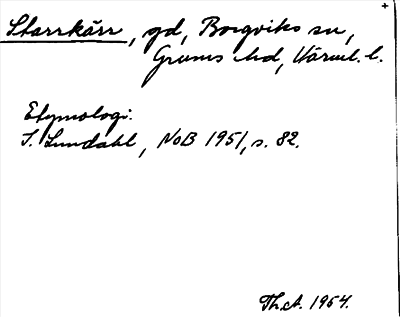 Starrkärr, gd, Borgviks sn,
Grums hd, Värml. l.
Etymologi.
I. Lundahl, NoB 1951, s. 82.
Th.A. 1964.